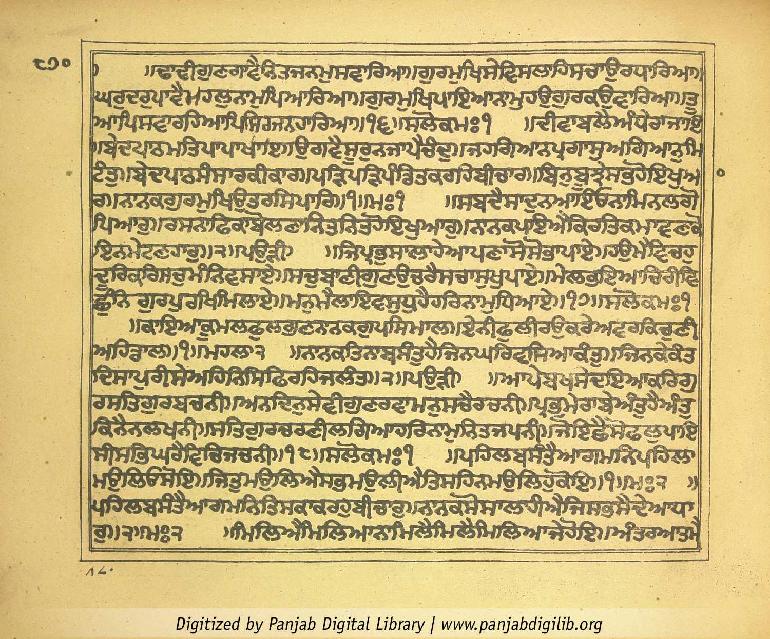 ੮੭੦
। ॥ਢਾਢੀਗੁਣਗਾਵੈਨਿਤਜਨਮੁਸਵਾਰਿਆ॥ਗੁਰਮੁਖਿਸੇਵਿਸਲਾਹਿਸਚਾਉਰਧਾਰਿਆ॥
ਘਰੁਦਰੁਪਾਵੈਮਹਲੁਨਾਮੁਪਿਆਰਿਆ॥ਗੁਰਮੁਖਿਪਾਇਆਨਾਮੁਹਉਗੁਰਕਉਵਾਰਿਆ॥ਤੂ
ਆਪਿਸਵਾਰਹਿਆਪਿਸਿਰਜਨਹਾਰਿਆ॥੧੬॥ਸਲੋਕਮਃ੧ ॥ਦੀਵਾਬਲੈਅੰਧੇਰਾਜਾਇ
॥ਬੇਦਪਾਠਮਤਿਪਾਪਾਖਾਇ॥ਉਗਵੈਸੂਰੁਨਜਾਪੈਚੰਦੁ॥ਜਹਗਿਆਨਪ੍ਰਗਾਸੁਅਗਿਆਨੁਮਿ
ਟੰਤੁ॥ਬੇਦਪਾਠਸੰਸਾਰਕੀਕਾਰ॥ਪੜ੍ਹਿਪੜ੍ਹਿਪੰਡਿਤਕਰਹਿਬੀਚਾਰ॥ਬਿਨੁਬੂਝੇਸਭਹੋਇਖੁਆ
ਰ॥ਨਾਨਕਗੁਰਮੁਖਿਉਤਰਸਿਪਾਰਿ॥੧॥ਮਃ੧ ॥ਸਬਦੈਸਾਦੁਨਆਇਓਨਾਮਿਨਲਗੋ
ਪਿਆਰੁ॥ਰਸਨਾਫਿਕਾਬੋਲਣਾਨਿਤਨਿਤਹੋਇਖੁਆਰੁ॥ਨਾਨਕਪਇਐਕਿਰਤਿਕਮਾਵਣਾਕੋ
ਇਨਮੇਟਣਹਾਰੁ॥੨॥ਪਉੜੀ ॥ਜਿਪ੍ਰਭੁਸਾਲਾਹੇਆਪਣਾਸੋਸੋਭਾਪਾਏ॥ਹਉਮੈਵਿਚਹੁ
ਦੂਰਿਕਰਿਸਚੁਮੰਨਿਵਸਾਏ॥ਸਚੁਬਾਣੀਗੁਣਉਚਰੈਸਚਾਸੁਖੁਪਾਏ॥ਮੇਲੁਭਇਆਚਿਰੀਵਿ
ਛੁੰਨਿ ਗੁਰਪੁਰਖਿਮਿਲਾਏ॥ਮਨੁਮੈਲਾਇਵਸੁਧੁਹੈਹਰਿਨਾਮੁਧਿਆਏ॥੧੭॥ਸਲੋਕਮਃ੧
॥ਕਾਇਆਕੂਮਲਫੁਲਗੁਣਨਾਨਕਗੁਪਸਿਮਾਲ॥ਏਨੀਫੁਲੀਰਉਕਰੇਅਵਰਕਿਚੁਣੀ
ਅਹਿਡਾਲ॥੧॥ਮਹਲਾ੨ ॥ਨਾਨਕਤਿਨਾਬਸੰਤੁਹੈਜਿਨਘਰਿਵਸਿਆਕੰਤੁ॥ਜਿਨਕੇਕੰਤ
ਦਿਸਾਪੁਰੀਸੇਅਹਿਨਿਸਿਫਿਰਹਿਜਲੰਤ॥੨॥ਪਉੜੀ ॥ਆਪੇਬਖਸੇਦਇਆਕਰਿਗੁ
ਰਸਤਿਗੁਰਬਚਨੀ॥ਅਨਦਿਨੁਸੇਵੀਗੁਣਰਵਾਮਨੁਸਚੈਰਚਨੀ॥ਪ੍ਰਭੁਮੇਰਾਬੇਅੰਤੁਹੈਅੰਤੁ
ਕਿਨੈਨਲਖਨੀ॥ਸਤਿਗੁਰਚਰਣੀਲਗਿਆਹਰਿਨਾਮੁਨਿਤਜਪਨੀ॥ਜੋਇਛੈਸੋਫਲੁਪਾਇ
ਸੀਸਭਿਘਰੈਵਿਚਿਜਚਨੀ॥੧੮॥ਸਲੋਕਮਃ੧ ॥ਪਹਿਲਬਸੰਤੈਆਗਮਨਿਪਹਿਲਾ
ਮਉਲਿਓਸੋਇ॥ਜਿਤੁਮਉਲਿਐਸਭਮਉਲੀਐਤਿਸਹਿਨਮਉਲਿਹੁਕੋਇ॥੧॥ਮਃ੨ ॥
ਪਹਿਲਬਸੰਤੈਆਗਮਨਿਤਿਸਕਾਕਰਹੁਬੀਚਾਰੁ॥ਨਾਨਕਸੋਸਾਲਾਹੀਐਜਿਸਭਸੈਦੇਆਧਾ
ਰੁ॥੨॥ਮਃ੨ ॥ਮਿਲਿਐਮਿਲਿਆਨਾਮਿਲੈਮਿਲੈਮਿਲਿਆਜੇਹੋਇ॥ਅੰਤਰਆਤਮੈ
Digitized by Panjab Digital Library | www.panjabdigilib.org